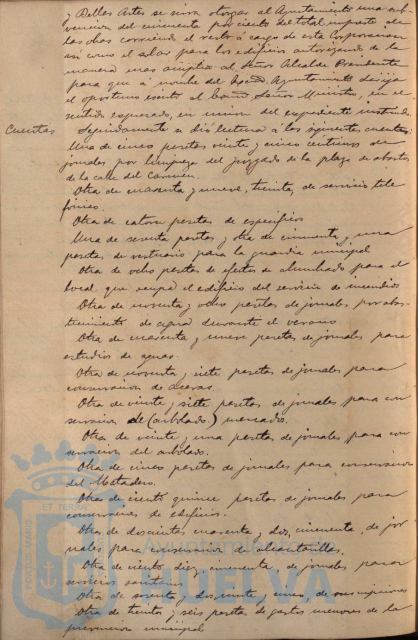 y Bellas Artes se sirva otorgar al Ayuntamiento una sub-
vencion del cincuenta por ciento del total importe de
las obras corriendo el resto á cargo de esta Corporacion
así como el solar para los edificios autorizando de la
manera mas amplia al Señor Alcalde Presidente
para que á nombre del Excmo Ayuntamiento dirija
el oportuno escrito al Excmo Señor Ministro, en el
sentido expresado, en union del expediente instruido.
Cuentas
Seguidamente se dió lectura á las siguientes cuentas:
Una de cinco pesetas veinte y cinco centimos de
jornales por limpieza del juzgado de la plaza de abastos
de la calle del Carmen.
Otra de cuarenta y nueve, treinta, de servicio tele-
fonico.
Otra de catorce pesetas de especificos
Una de sesenta pesetas y otra de cincuenta y una
pesetas de vestuario para la guardia municipal
Otra de ocho pesetas de efectos de alumbrado para el
local que ocupa el edificio del servicio de incendios
Otra de noventa y ocho pesetas de jornales por abas-
tecimiento de agua durante el verano
Otra de cuarenta y nueve pesetas de jornales para
estudios de aguas.
Otra de noventa y siete pesetas de jornales para
conservacion de aceras.
Otra de veinte y siete pesetas de jornales para con-
servacion de (arbolado) mercados.
Otra de veinte y una pesetas de jornales para con-
servacion del arbolado.
Otra de cinco pesetas de jornales para conservacion
del Matadero.
Otra de ciento quince pesetas de jornales para
conservacion de edificios.
Otra de doscientas cuarenta y dos, cincuenta, de jor-
nales para conservacion de alcantarillas.
Otra de ciento diez, cincuenta, de jornales para
servicio sanitario
Otra de sesenta y dos, veinte y cinco, de suscripciones
Otra de treinta y seis pesetas de gastos menores de la
prevencion municipal
Ayuntamiento de
HUELVA
PORTUS MARIS
ET TERRAE